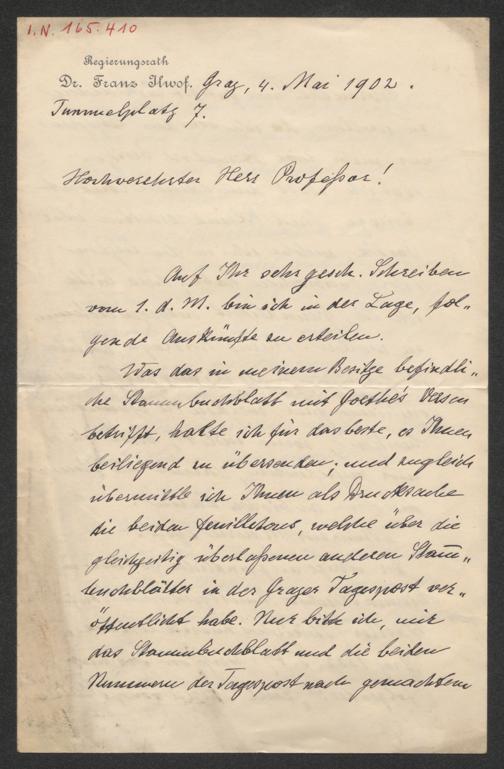 I.N. 165.410
Regierungsrath
Dr. Franz Ilwof. Graz, 4. Mai 1902.
Tummelplatz 7.
Hochverehrter Herr Profeßor!
Auf Ihr sehr gesch. Schreiben
vom 1. d. M. bin ich in der Lage, fol-
gende Auskünfte zu erteilen.
Was das in meinem Besitze befindli-
che Stammbuchblatt mit Goethe's Versen
betrifft, halte ich für das beste, es Ihnen
beiliegend zu übersenden; und zugleich
übermittle ich Ihnen als Drucksache
die beiden Feuilletons, welche über die
gleichzeitig überlaßenen anderen Stam̅-
buchblätter in der Grazer Tagespost ver-
öffentlicht habe. Nur bitte ich, mir
das Stammbuchblatt und die beiden
Nummern der Tagespost nach gemachtem